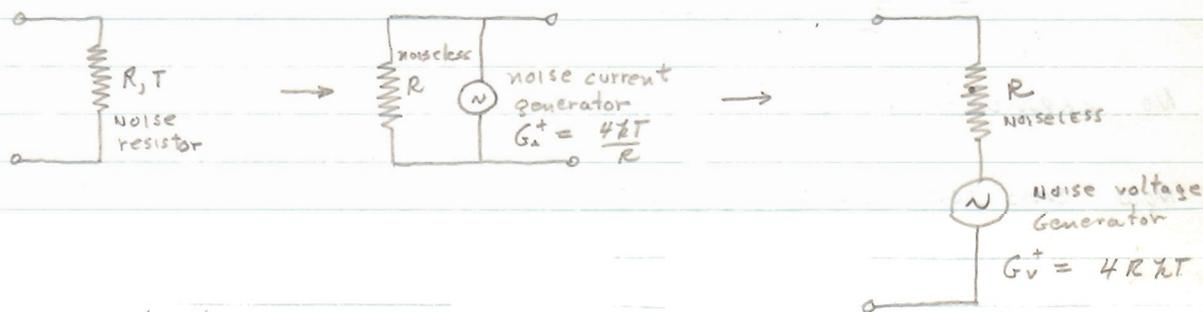 R, T
Noise
resistor
noiseless
R
noise current
generator
G_i^+ = 4kT/R
R
Noiseless
Noise voltage
Generator
G_v^+ = 4RkT